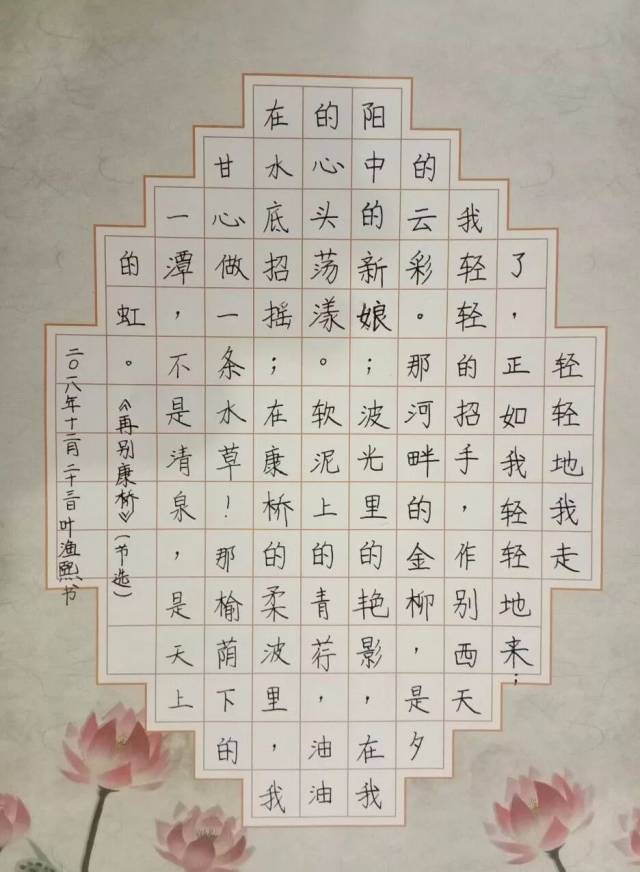 轻轻地我走
了，正如我轻轻地来；
我轻轻的招手，作别西天
的云彩。那河畔的金柳，是夕
阳中的新娘；波光里的艳影，在我
的心头荡漾。软泥上的青荇，油油
在水底招摇；在康桥的柔波里，我
甘心做一条水草！那榆荫下的
一潭，不是清泉，是天上
的虹。《再别康桥》（节选）
二〇一八年十二月二十三日叶渔熙书